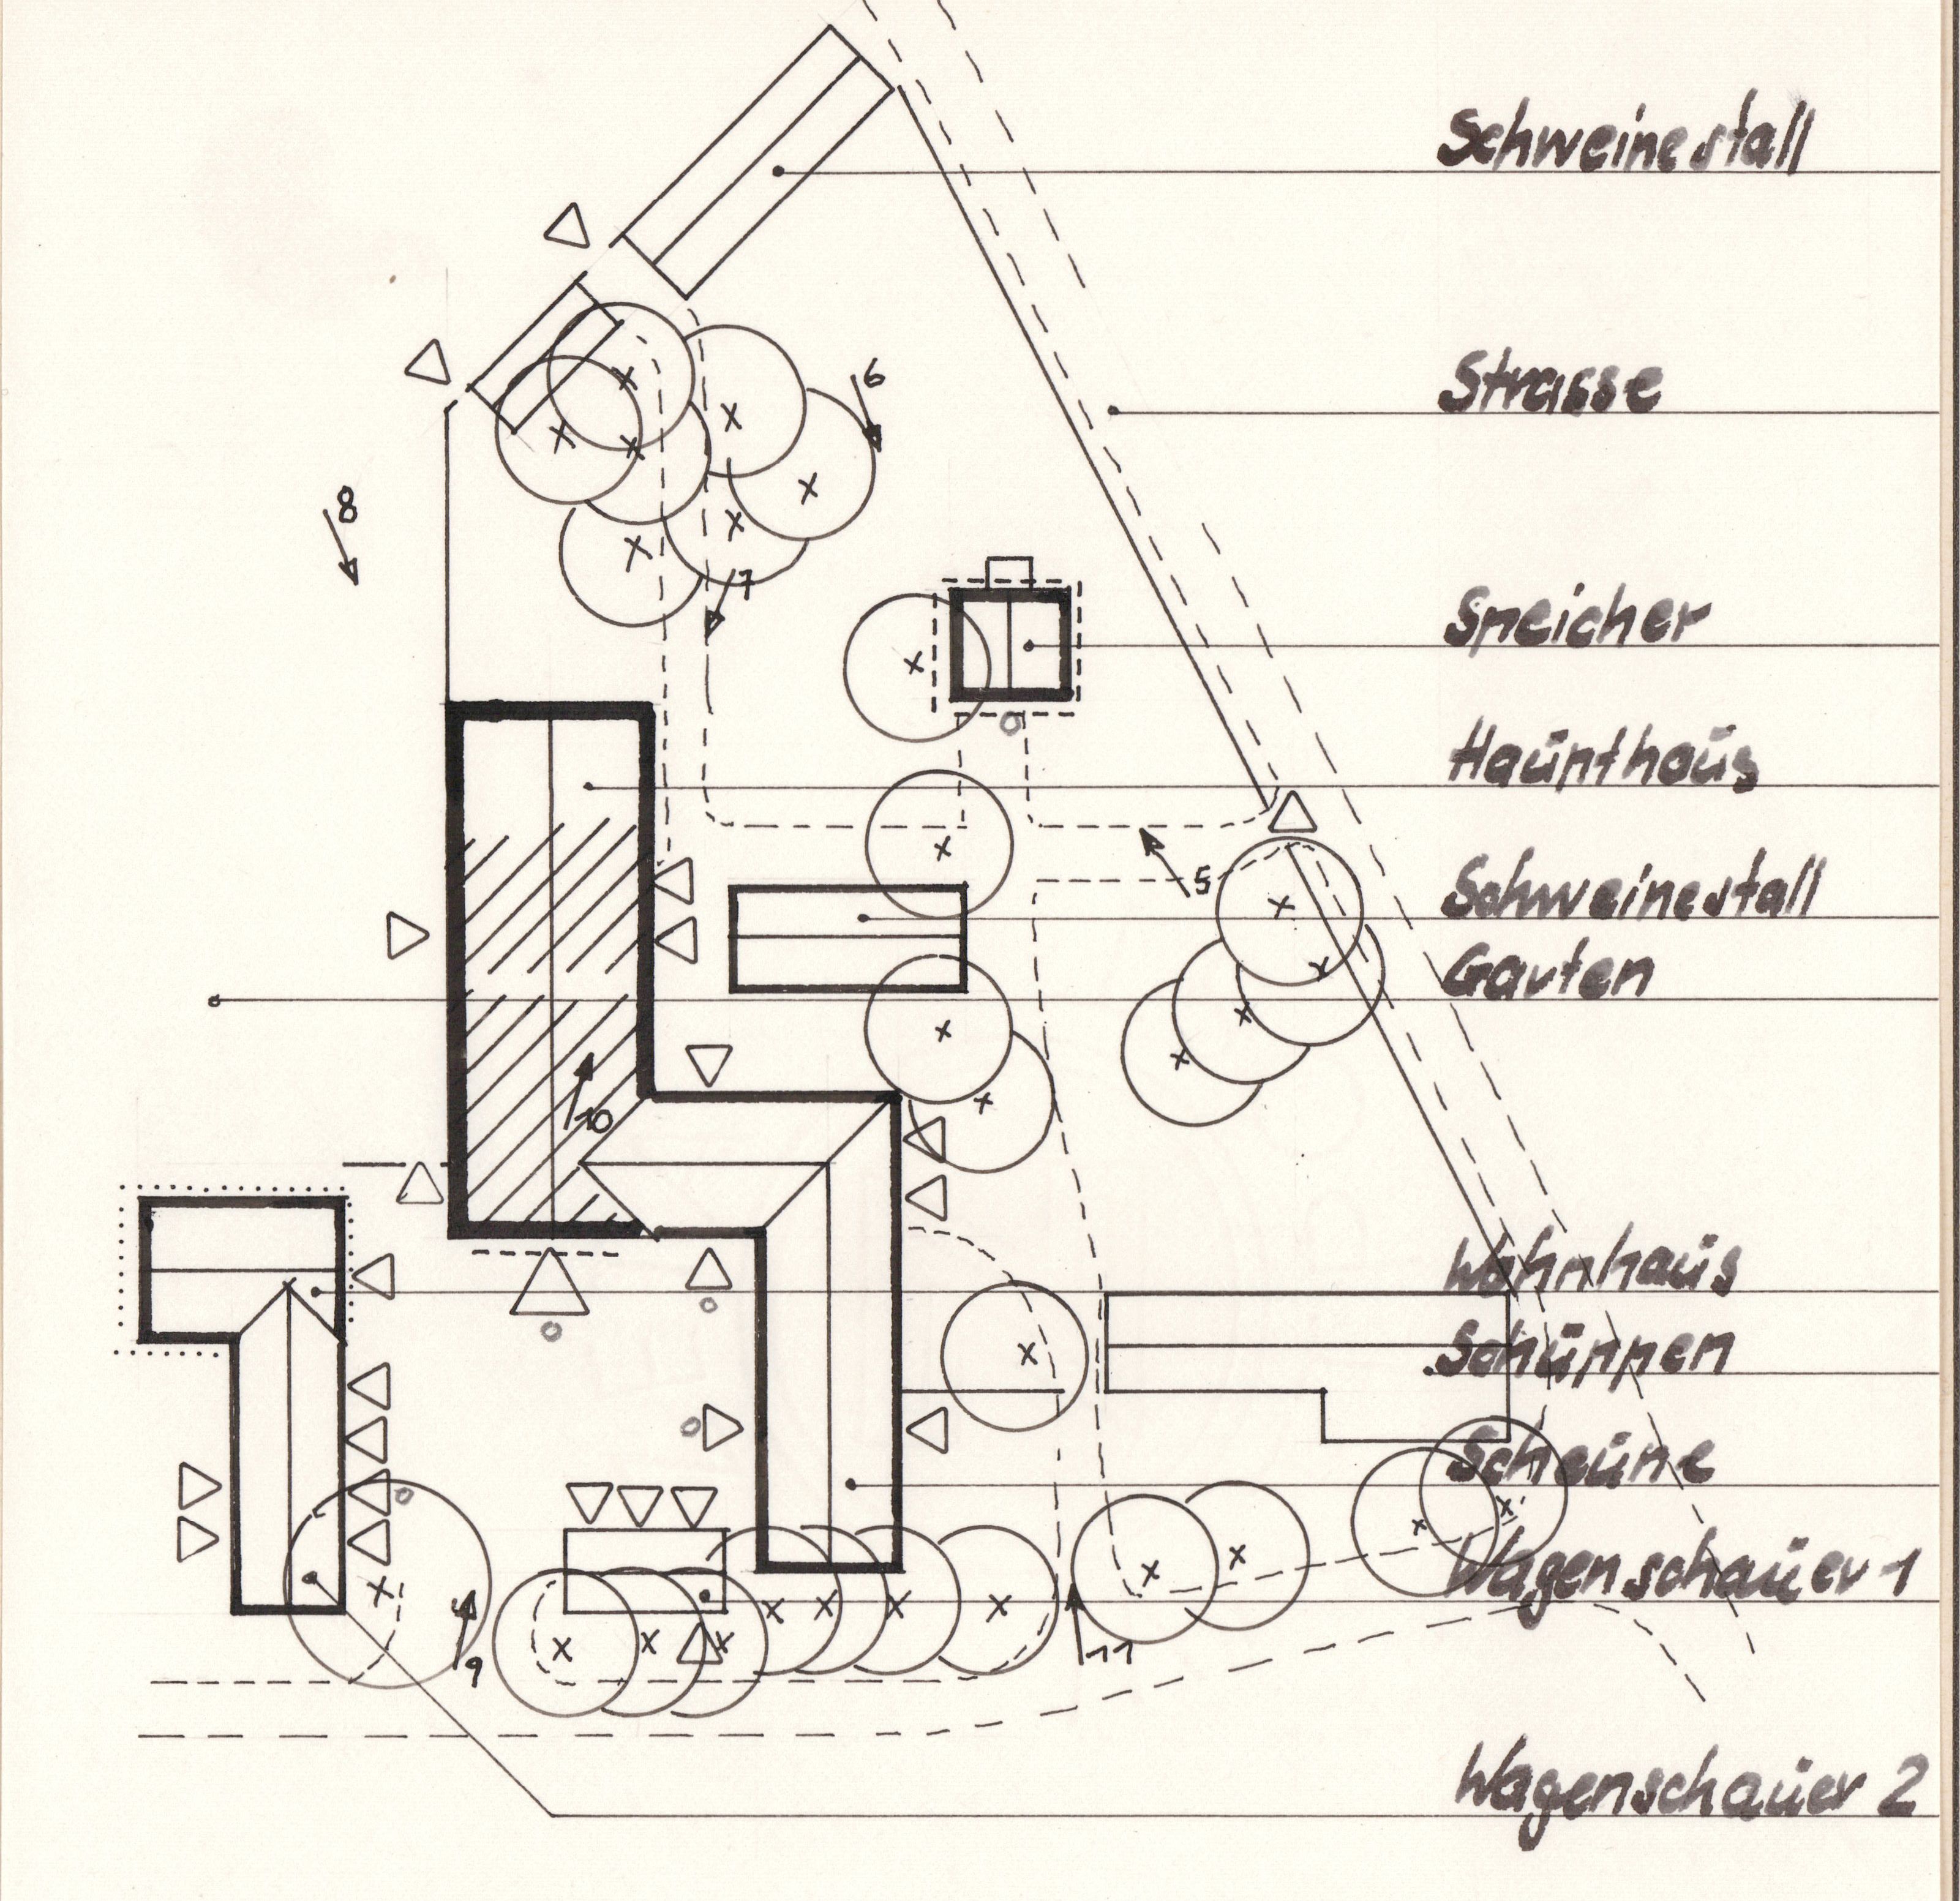 Schweinestall
6
Strasse
8
7
Speicher
Haupthaus
5
Schweinestall
Garten
10
Wohnhaus
Schuppen
Scheune
Wagenschauer 1
9
11
Wagenschauer 2